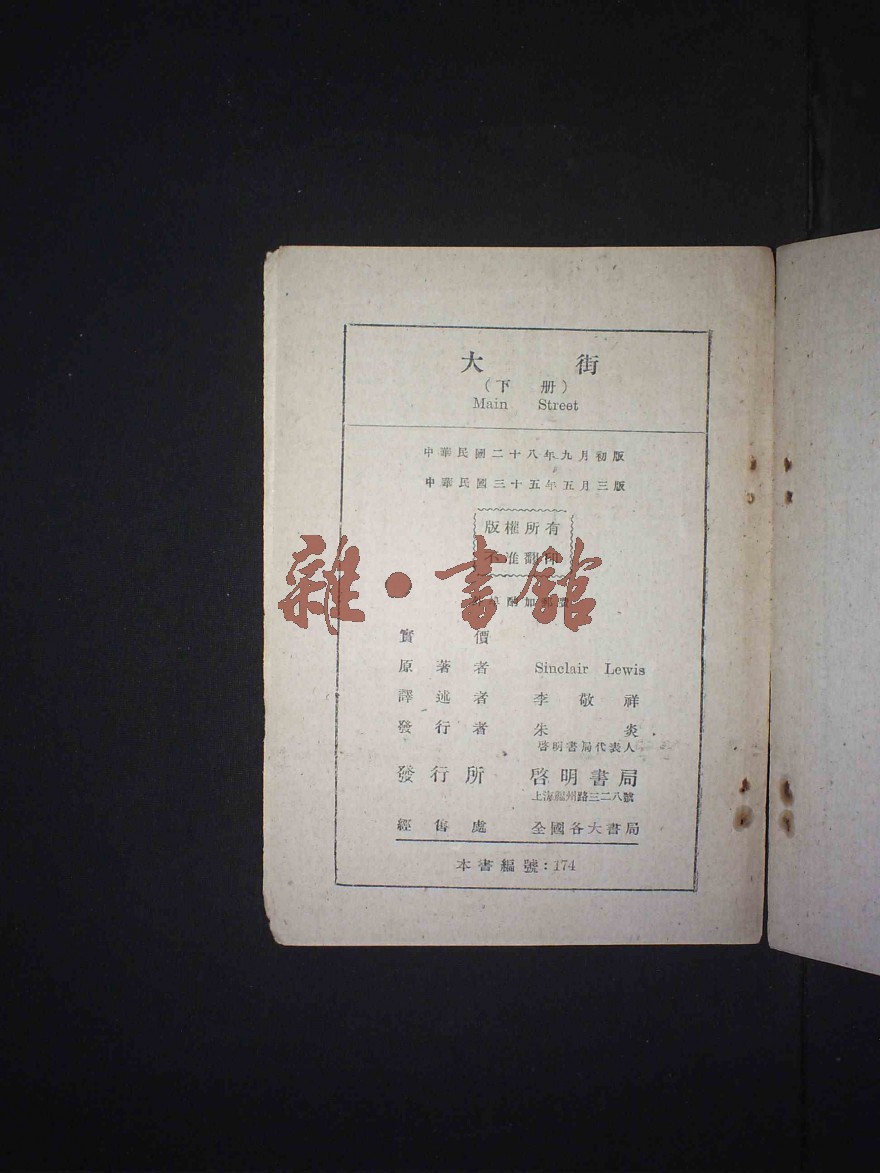 大 街
（下 册）
Main Street
中華民國二十八年九月初版
中華民國三十五年五月三版
版權所有
不准翻印
雜·書館
埠酌加郵
實 價
原著者 Sinclair Lewis
譯述者 李敬祥
發行者 朱炎
啓明書局代表人
發行所 啓明書局
上海福州路三二八號
經售處 全國各大書局
本書編號：174